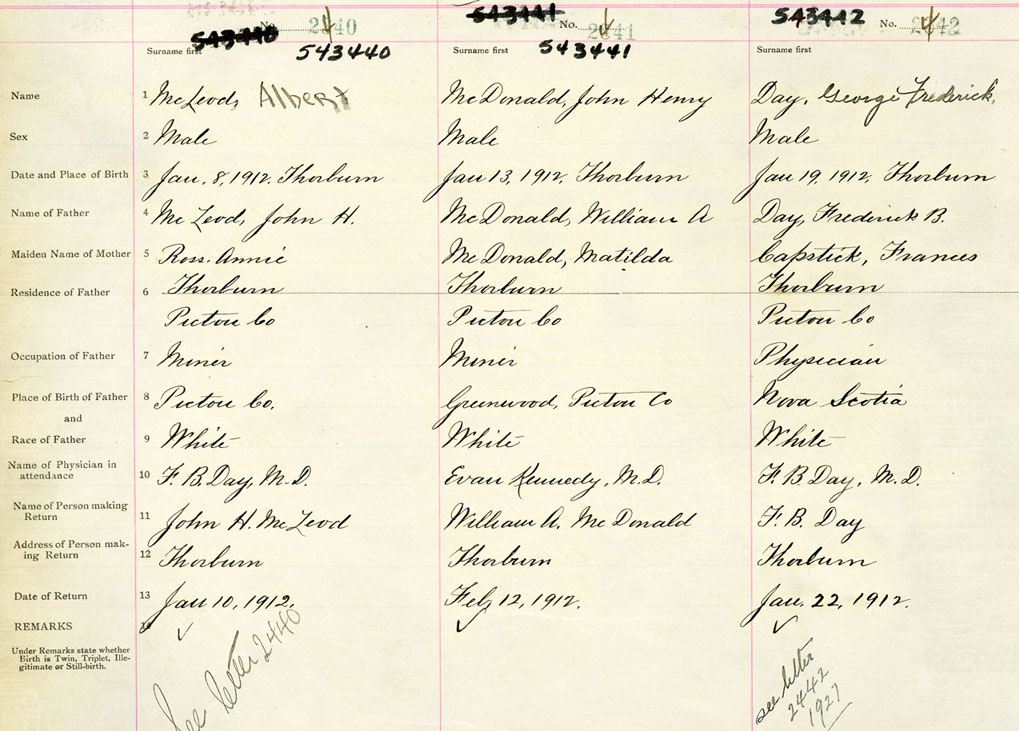 543441 543442
No. No. No. 2342
543440 543441
Surname first Surname first Surname first
Name 1 McLeod, Albert McDonald, John Henry Day, George Frederick,
Sex 2 Male Male Male
Date and Place of Birth 3 Jan. 8, 1912. Thorburn Jan 13, 1912, Thorburn Jan 19, 1912, Thorburn
Name of Father 4 McLeod, John H. McDonald, William A Day, Frederick B.
Maiden Name of Mother 5 Ross. Annie McDonald, Matilda Capstick, Frances
Residence of Father 6 Thorburn Thorburn Thorburn
Pictou Co Pictou Co Pictou Co
Occupation of Father 7 Miner Miner Physician
Place of Birth of Father 8 Pictou Co. Greenwood, Pictou Co Nova Scotia
and
Race of Father 9 White White White
Name of Physician in
attendance 10 F. B. Day, M.D. Evan Kennedy, M.D. F. B. Day, M.D.
Name of Person making
Return 11 John H. McLeod William A. McDonald F. B. Day
Address of Person mak-
ing Return 12 Thorburn Thorburn Thorburn
Date of Return 13 Jan 10, 1912. Feb 12, 1912. Jan. 22, 1912.
REMARKS 14
Under Remarks state whether
Birth is Twin, Triplet, Ille-
gitimate or Still-birth.
See letter 2440
see letter
2442
1927